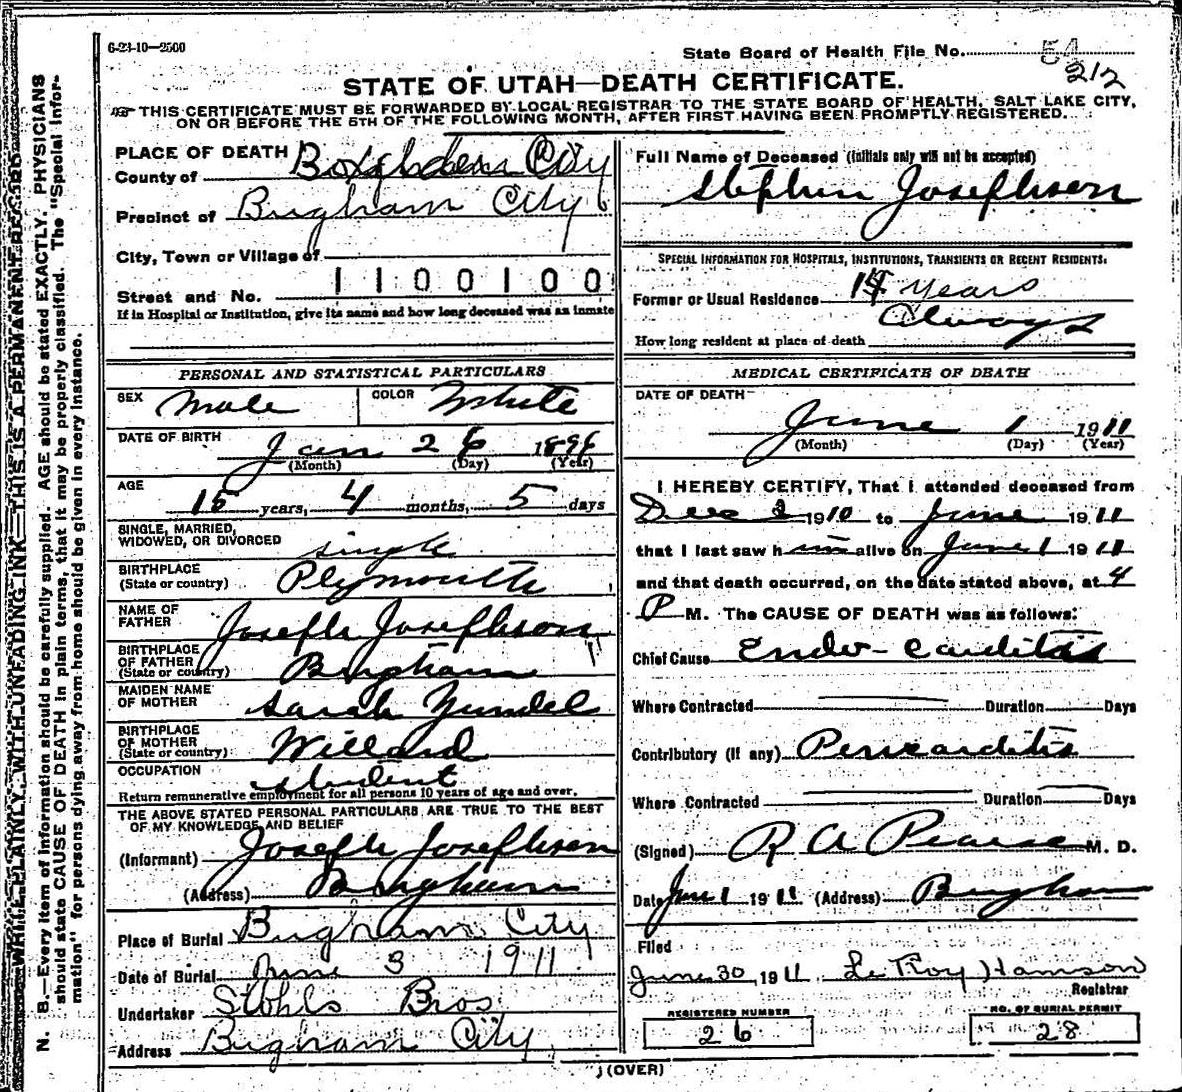 6-23-10—2500
State Board of Health File No. 54
212
STATE OF UTAH—DEATH CERTIFICATE.
THIS CERTIFICATE MUST BE FORWARDED BY LOCAL REGISTRAR TO THE STATE BOARD OF HEALTH, SALT LAKE CITY,
ON OR BEFORE THE 5TH OF THE FOLLOWING MONTH, AFTER FIRST HAVING BEEN PROMPTLY REGISTERED.
PLACE OF DEATH
County of
Precinct of Brigham City
City, Town or Village of
1 1 0 0 1 0 0
Street and No.
If in Hospital or Institution, give its name and how long deceased was an inmate
PERSONAL AND STATISTICAL PARTICULARS
SEX Male COLOR White
DATE OF BIRTH Jan 26 1896
(Month) (Day) (Year)
AGE 15 years, 4 months, 5 days
SINGLE, MARRIED,
WIDOWED, OR DIVORCED single
BIRTHPLACE
(State or country) Plymouth
NAME OF
FATHER Joseph Josephson
BIRTHPLACE
OF FATHER
(State or country) Brigham
MAIDEN NAME
OF MOTHER Sarah Yundel
BIRTHPLACE
OF MOTHER
(State or country) Willard
OCCUPATION student
Return remunerative employment for all persons 10 years of age and over.
THE ABOVE STATED PERSONAL PARTICULARS ARE TRUE TO THE BEST
OF MY KNOWLEDGE AND BELIEF
(Informant) Joseph Josephson
(Address) Brigham
Place of Burial Brigham City
Date of Burial June 3 1911
Undertaker Stohls Bros
Address Brigham City
Full Name of Deceased (Initials only will not be accepted)
Stephen Josephson
SPECIAL INFORMATION FOR HOSPITALS, INSTITUTIONS, TRANSIENTS OR RECENT RESIDENTS.
Former or Usual Residence 15 years
How long resident at place of death Always
MEDICAL CERTIFICATE OF DEATH
DATE OF DEATH
June 1 1911
(Month) (Day) (Year)
I HEREBY CERTIFY, That I attended deceased from
Dec 2 1910 to June 1911
that I last saw him alive on June 1 1911
and that death occurred, on the date stated above, at 4
P M. The CAUSE OF DEATH was as follows:
Chief Cause Endo-carditis
Where Contracted Duration Days
Contributory (if any) Pericarditis
Where Contracted Duration Days
(Signed) R A Pearse M. D.
Date Jun 1 1911 (Address) Brigham
Filed
June 30, 1911 LeRoy Hamson
Registrar
REGISTERED NUMBER
26
NO. OF BURIAL PERMIT
28
(OVER)
N. B.—Every item of information should be carefully supplied. AGE should be stated EXACTLY. PHYSICIANS
should state CAUSE OF DEATH in plain terms, that it may be properly classified. The "Special Infor-
mation" for persons dying away from home should be given in every instance.
WRITE PLAINLY, WITH UNFADING INK—THIS IS A PERMANENT RECORD